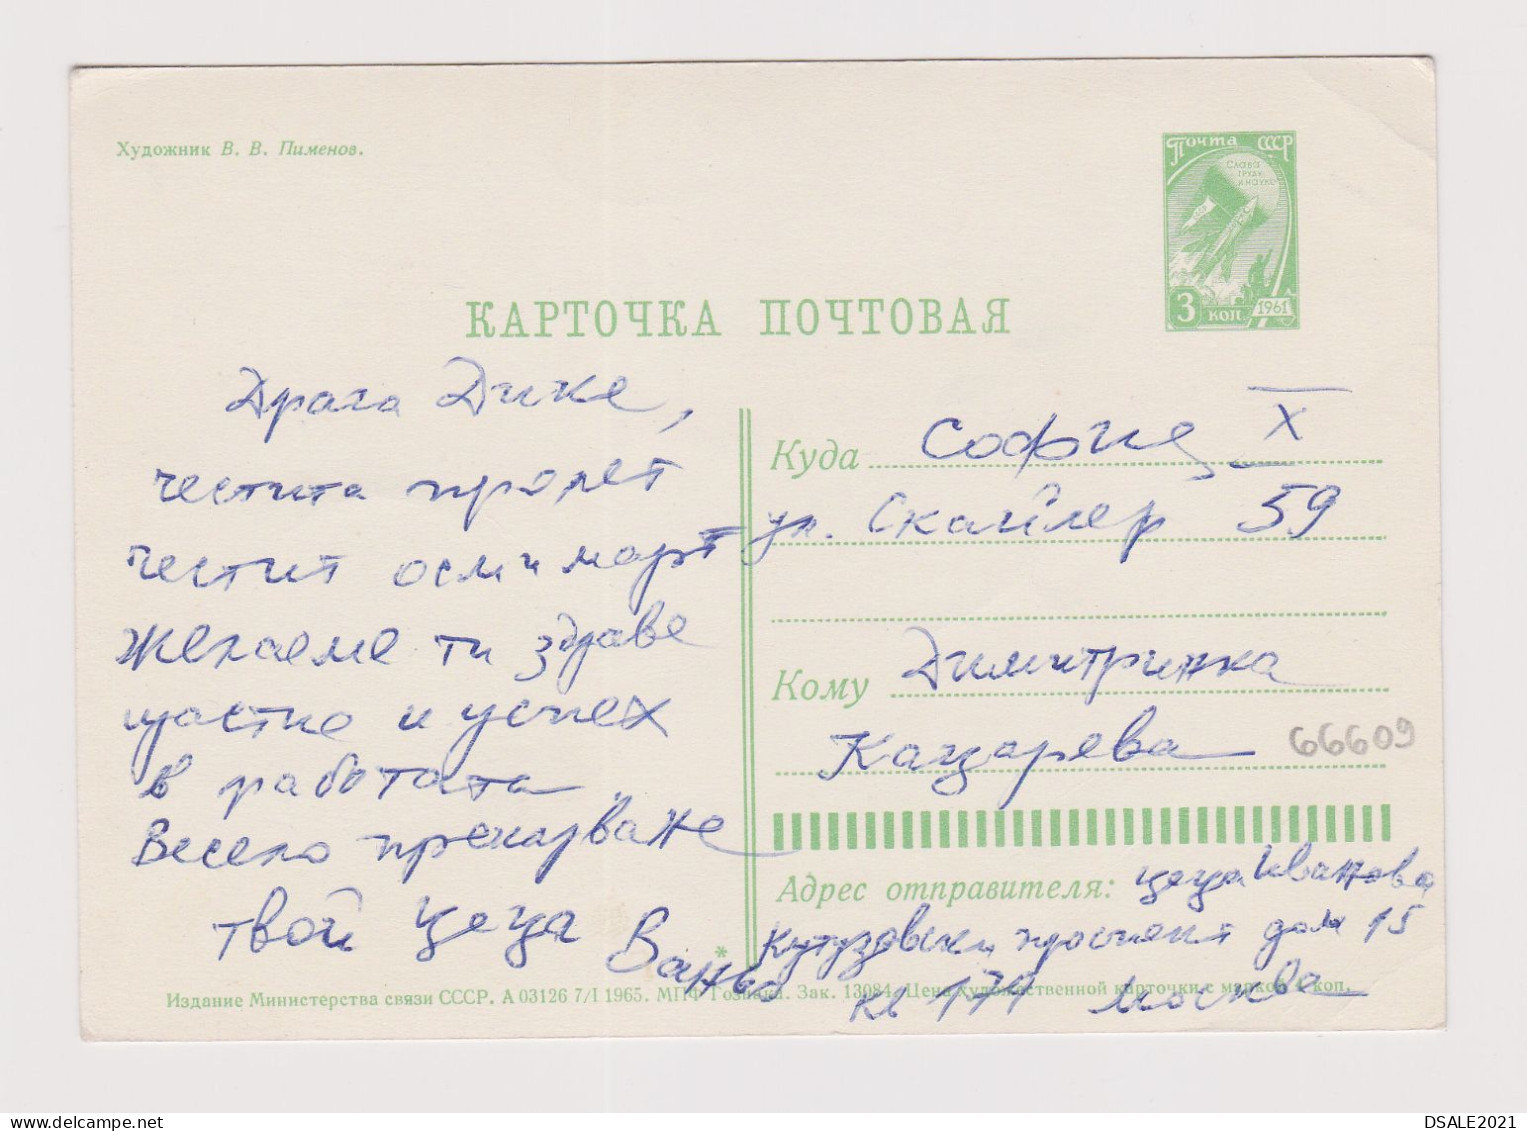 Художник В. В. Пименов.
Почта СССР
Слава
труду
и науке
3 коп 1961
КАРТОЧКА ПОЧТОВАЯ
Драга Дике,
честита пролет
честит осми март
Желаеме ти здраве
щастие и успех
в работата.
Весело прекарване
твой Цеца Ваньо
Куда София X
ул. Скайлер 59
Кому Димитринка
Кацарева
66609
Адрес отправителя: Цеца Иванова
Кутузовски проспект дом 15
кв 171 Москва
*
Издание Министерства связи СССР. А 03126 7/I 1965. МПФ Гознака. Зак. 13084. Цена художественной карточки с маркой 4 коп.
DSALE2021